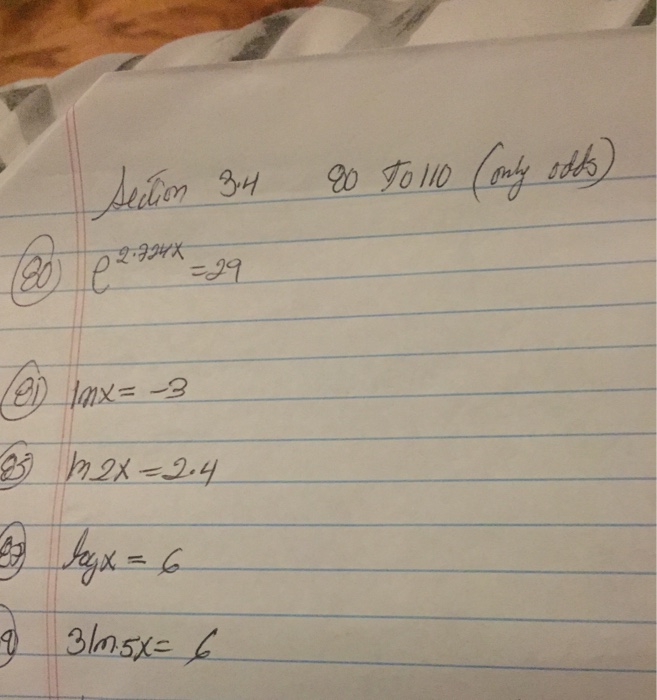 Section 3.4 80 To 110 (only odds)
80) e^2.724x = 29
81) ln x = -3
85) ln 2x = 2.4
87) log x = 6
9) 3 ln 5x = 6